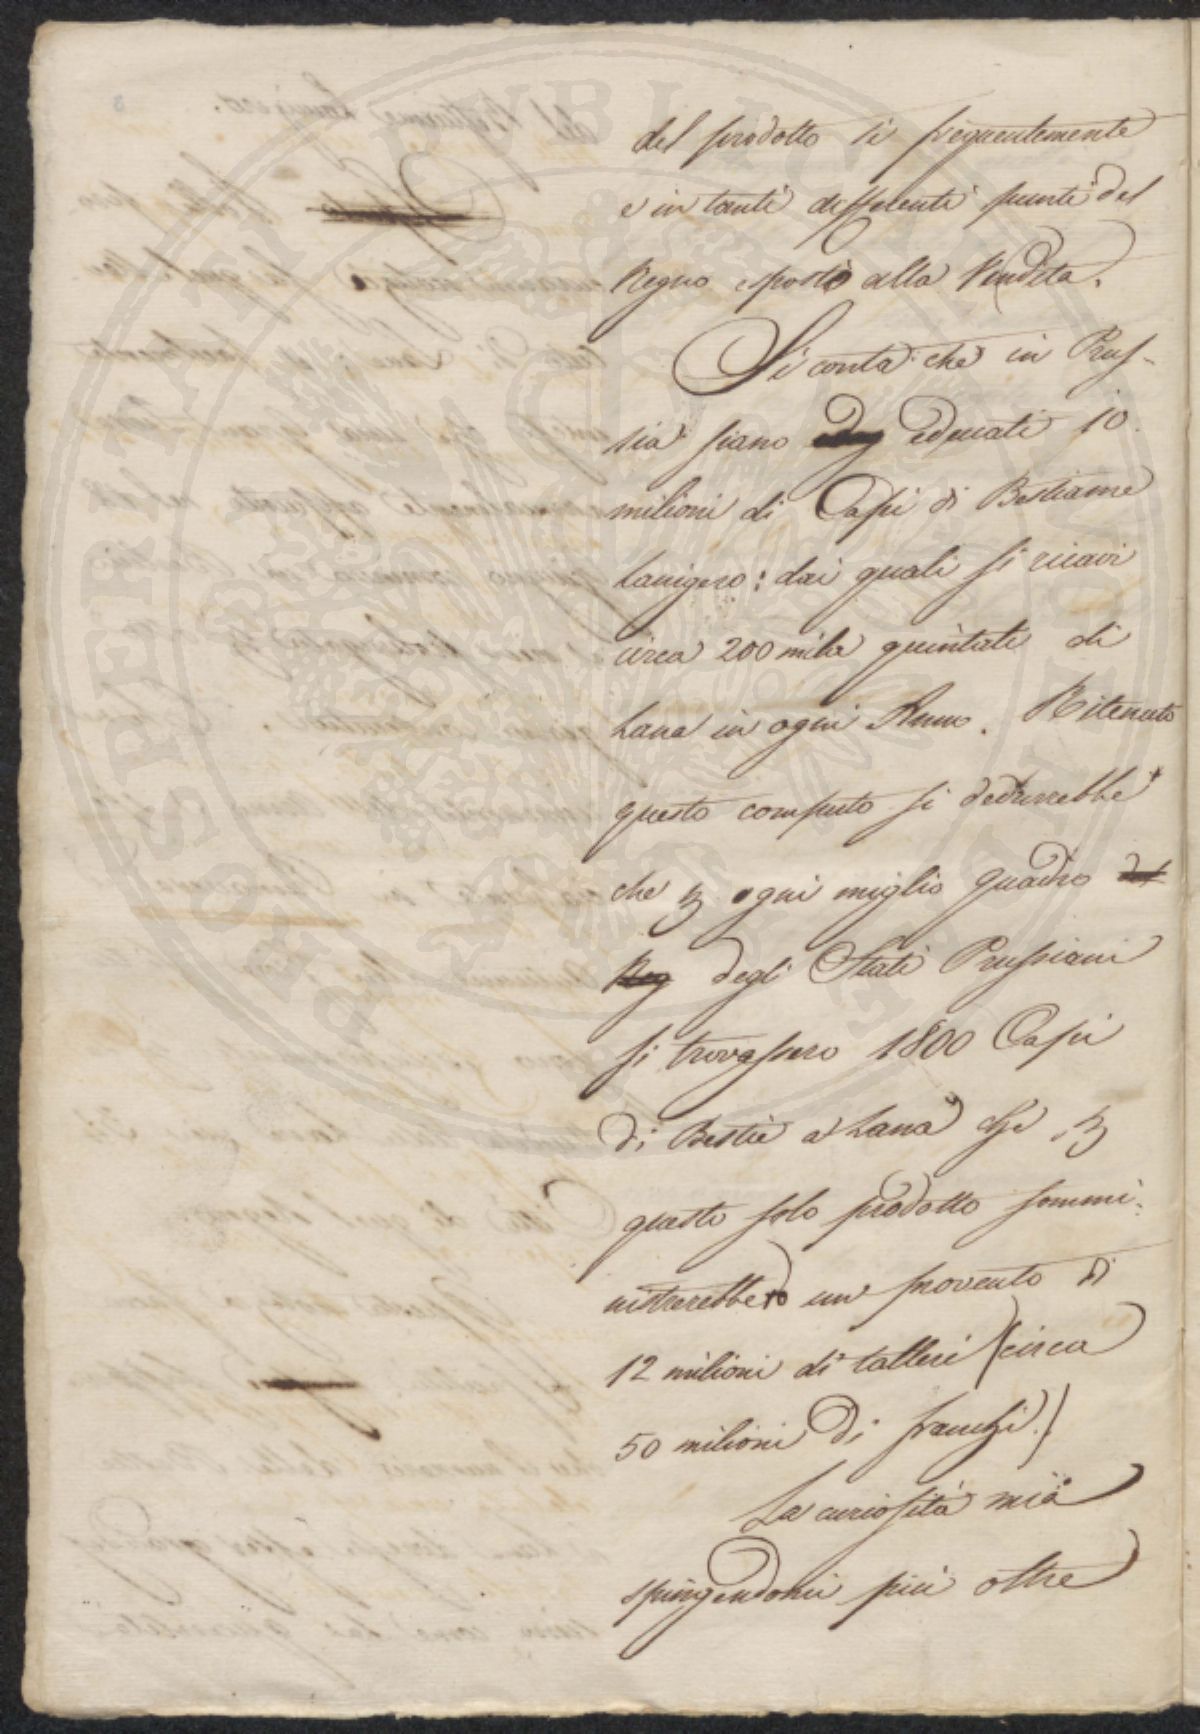 del prodotto sì frequentemente
e in tanti differenti punti del
Regno esposto alla Vendita.
Si conta che in Prus-
sia siano educati 10
milioni di Capi di Bestiame
lanigero: dai quali si ricavi
circa 200 mila quintali di
Lana in ogni Anno. Ritenuto
questo computo si dedurrebbe
che ꝑ ogni miglio quadro del
Reg degli Stati Prussiani
si trovassero 1800 Capi
di Bestie a Lana che, ꝑ
questo solo prodotto sommi-
nistrerebbero un provento di
12 milioni di talleri (circa
50 milioni di franchi.)
La curiosità mia
spingendomi più oltre
PROSPERITATI PUBLICAE